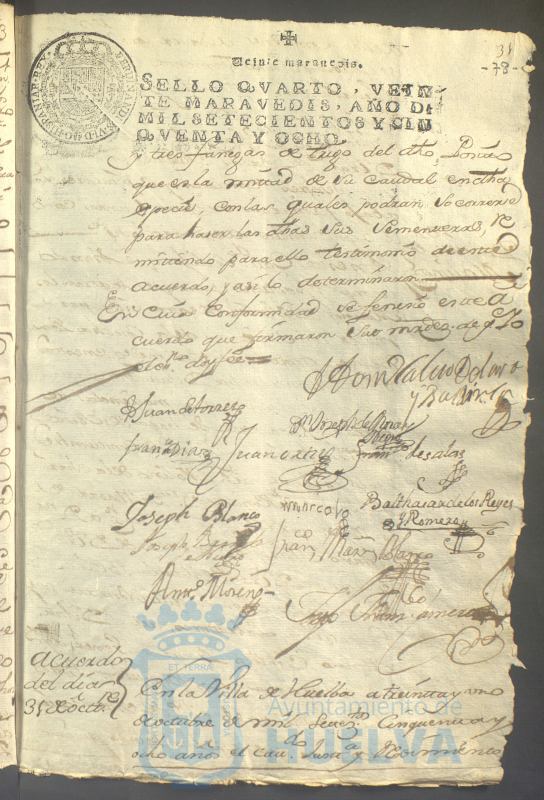 31
-78-
Veinte maravedis.
SELLO QVARTO, VEIN
TE MARAVEDIS, AÑO D
MIL SETECIENTOS Y CIN
QVENTA Y OCHO.
FERDINAND VI D G HISPANIAR REX
y tres fanegas de trigo del dho Posito
que es la mitad de su Caudal en dha
especie, con las quales podran socorrerse
para haser las dhas sus sementeras, re
mitiendo para ello testimonio de este
acuerdo, y asi lo determinaron
En cuia Conformidad se fenesio este a
cuerdo que firmaron sus mrdes. de q. Yo
el esno. doy fee
Juan de torres
Dn. Joseph de
Franco Dias
Juan ortiz
Fran de salas
Joseph Blanco
marcos
Balthasar de los Reyes
y Romero
Joseph
Franco Martn Blanco
Anto. Moreno
acuerdo
del dia
31 de octtre
En la Villa de Huelba a treinta y uno
de octubre de mil setestos Cinquenta y
ocho años el cav.
ET TERRÆ
Ayuntamiento de
HUELVA